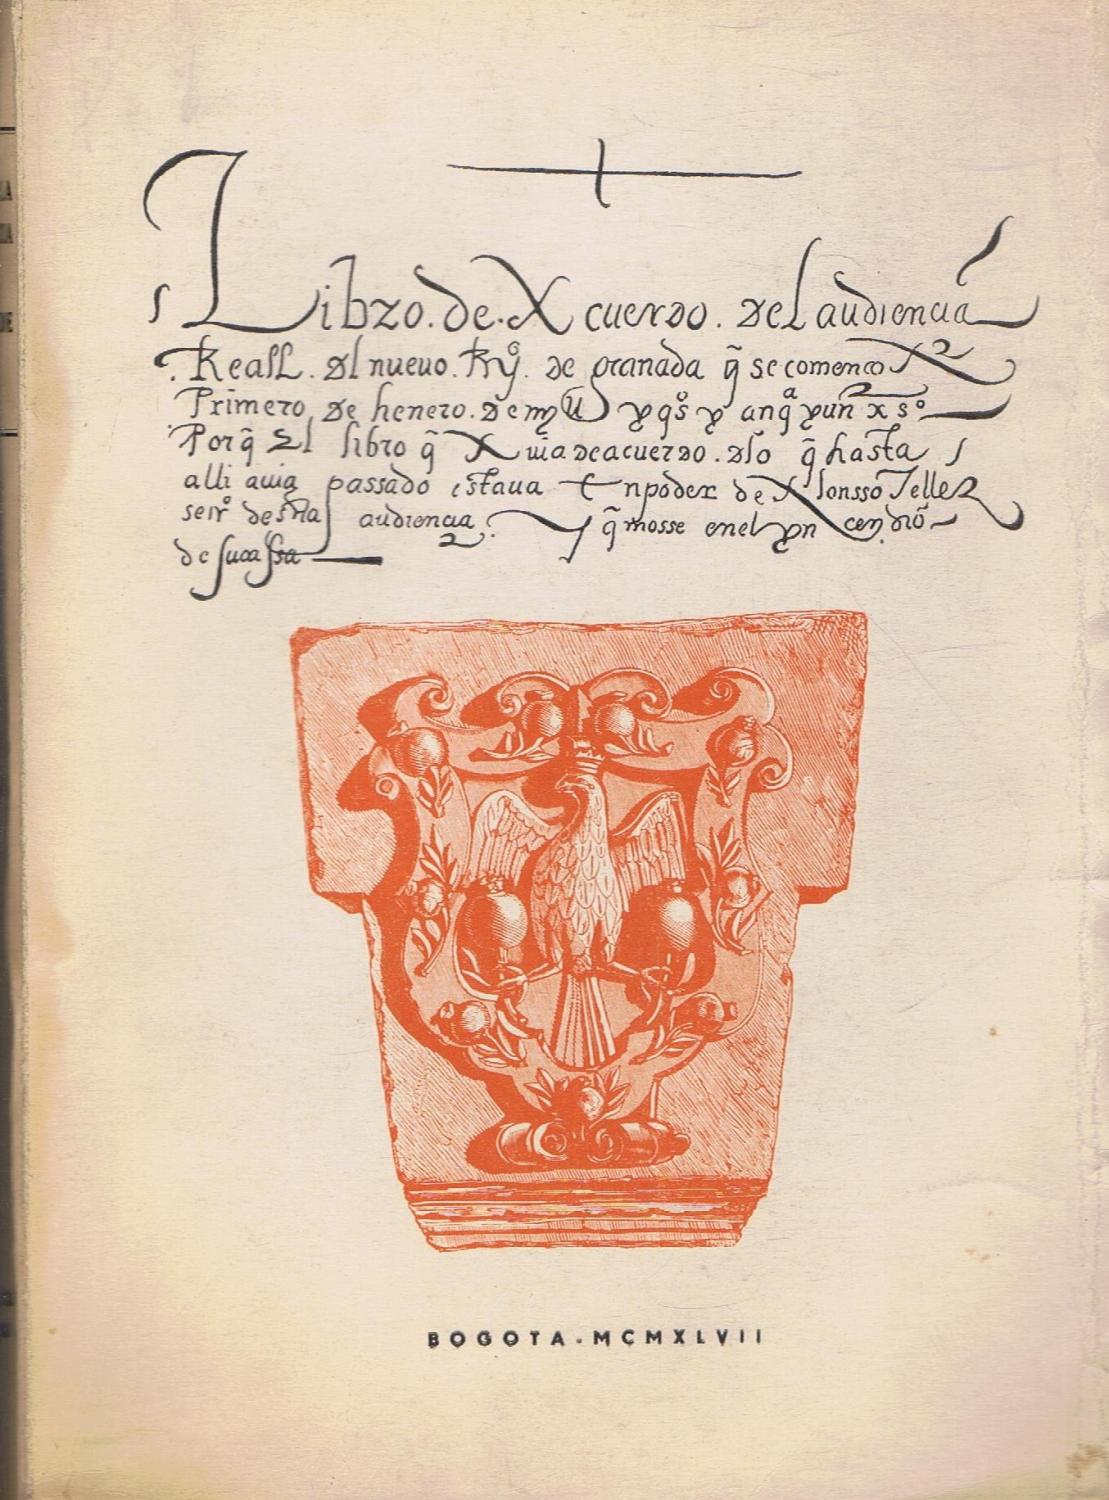 Libro. de. Acuerdo. del audiencia
Reall. dl nuevo. Ry͂º. de granada q̃ se comenco A
Primero, de henero. de y qºs y anqª y un as°
Porq̃ El libro q̃ Avia deacuerdo. dlo q̃ hasta
alli avia passado estava En poder de Alonsso Tellez
desta audiencia. q̃mosse enel yncendio
de su cassa
BOGOTA-MCMXLVII